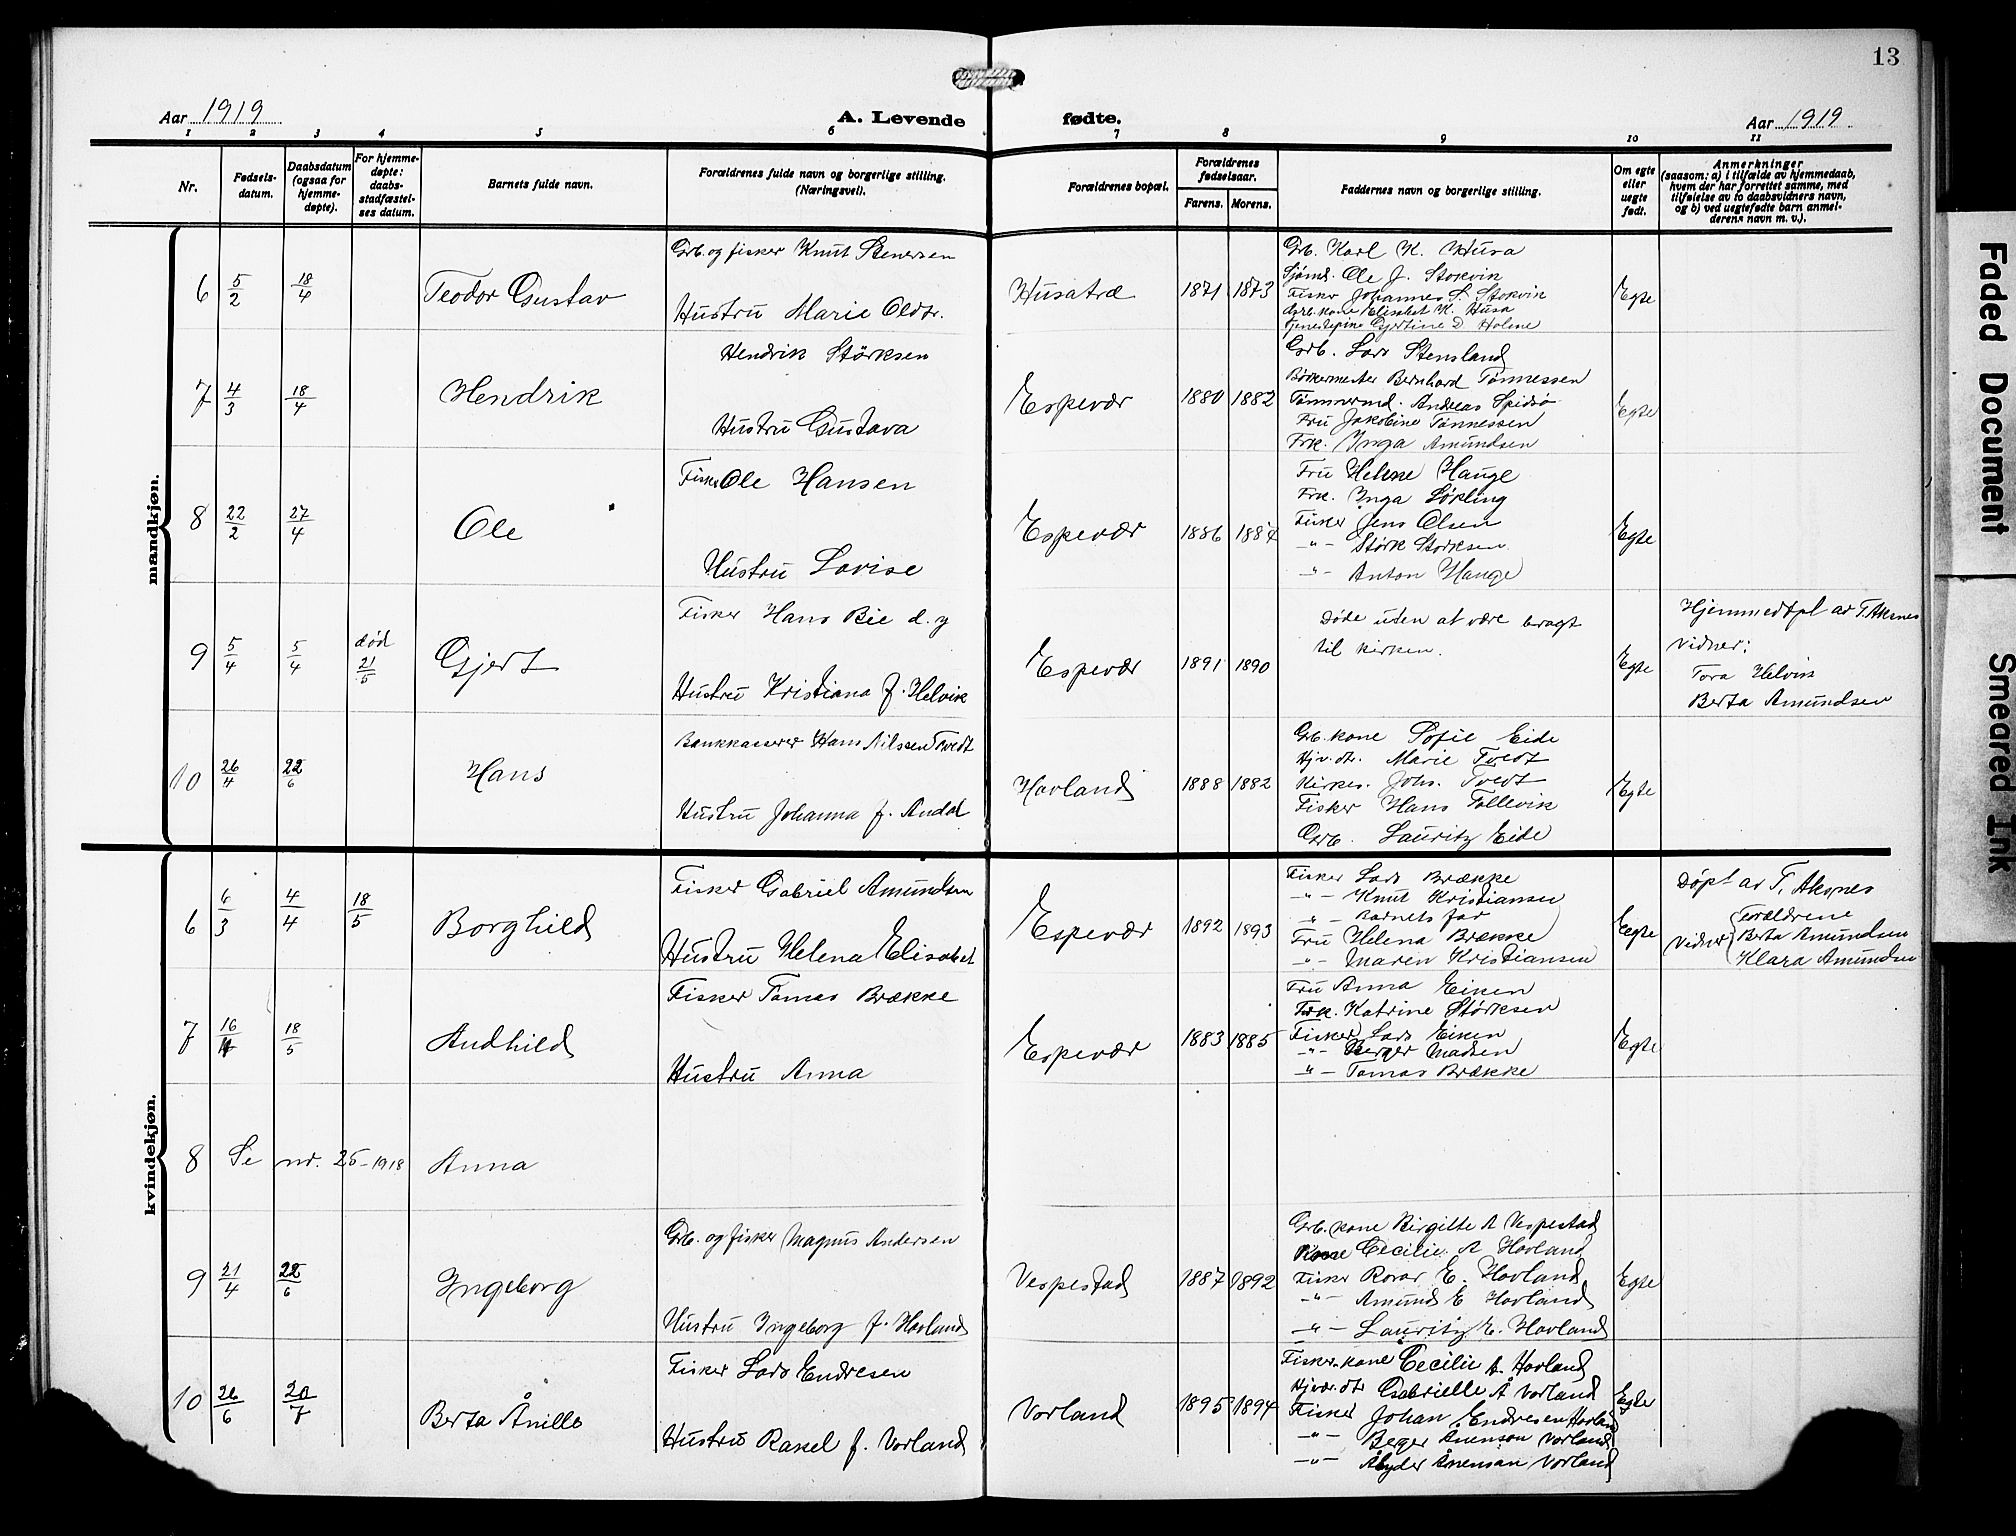 13
Aar 1919
A. Levende
fødte.
Aar 1919
1 2 3 4 5 6 7 8 9 10 11
Nr.
Fødsels-
datum.
Daabsdatum
(ogsaa for
hjemme-
døpte).
For hjemme-
døpte:
daabs-
stadfæstel-
ses datum.
Barnets fulde navn.
Forældrenes fulde navn og borgerlige stilling.
(Næringsvei).
Forældrenes bopæl.
Forældrenes
fødselsaar.
Farens. Morens.
Faddernes navn og borgerlige stilling.
Om egte
eller
uegte
født.
Anmerkninger
(saasom: a) i tilfælde av hjemmedaab,
hvem der har forrettet samme, med
tilføielse av to daabsvidners navn,
og b) ved uegtefødte barn anmel-
derens navn m. v.).
mandkjøn.
6 5/2 18/4 Teodor Gustav
Grb. og fisker Knut Stenersen
Hustru Marie Oldr.
Husatræ 1871 1873
Grb. Karl K. Husa
Sjømd. Ole J. Stokvik
Fisker Johannes S. Stokvik
Grb.kone Elisabet K. Husa
Tjenestepike Gjertine D. Holme
Egte
7 4/3 18/4 Hendrik
Hendrik Størksen
Hustru Gustava
Espevær 1880 1882
Grb. Lars Stensland
Bødkermester Bernhard Tønnessen
Tømmermd. Andreas Spidsø
Fru Jakobine Tønnessen
Frk. Inga Amundsen
Egte
8 22/2 27/4 Ole
Fisker Ole Hansen
Hustru Lovise
Espevær 1886 1887
Fru Helene Hauge
Frk. Inga Løkling
Fisker Jens Olsen
-"- Størk Storksen
-"- Anton Hauge
Egte
9 5/4 5/4 død 21/5 Gjert
Fisker Hans Bie d. y
Hustru Kristiana f. Helvik
Espevær 1891 1890
Døde uden at være bragt
til kirken.
Egte
Hjemmedøpt av T. Aksnes
Vidner:
Tora Helvik
Berta Amundsen
10 26/4 22/6 Hans
Bankkasserer Hans Nilssen Tvedt
Hustru Johanna f. Andal
Hovland 1888 1882
Grb.kone Sofie Eide
Hjv.dtr. Marie Tvedt
Kirkes. Johs. Tvedt
Fisker Hans Tollevik
Grb. Lauritz Eide
Egte
kvindekjøn.
6 6/3 4/4 18/5 Borghild
Fisker Gabriel Amundsen
Hustru Helena Elisabet
Espevær 1892 1893
Fisker Lars Brække
-"- Knut Kristiansen
-"- Barnets far
Fru Helena Brække
-"- Maren Kristiansen
Egte
Døpt av T. Aksnes
Vidner Forældrene
Berta Amundsen
Klara Amundsen
7 16/4 18/5 Audhild
Fisker Tomas Brække
Hustru Anna
Espevær 1883 1885
Fru Anna Eiken
Frk. Katrine Størksen
Fisker Lars Eiken
-"- Berger Madsen
-"- Tomas Brække
Egte
8 Se nr. 25-1918 Anna
9 21/4 22/6 Ingeborg
Grb. og fisker Magnus Andersen
Hustru Ingeborg f. Hovland
Vespestad 1887 1892
Grb.kone Birgitte A Vespestad
Kone Cecilie A Hovland
Fisker Roar E. Hovland
-"- Amund E Hovland
-"- Lauritz E. Hovland
Egte
10 26/6 20/7 Berta Ånille
Fisker Lars Endresen
Hustru Rakel f. Vorland
Vorland 1895 1894
Fisker.kone Cecilie A. Hovland
Hjv.dtr Gabrielle Å Vorland
Fisker Johan Endresen Hovland
-"- Beger Ånenson Vorland
-"- Ånensan Vorland
Egte
Faded Document
Smeared Ink